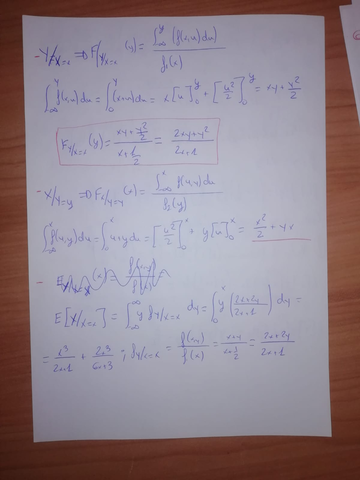 - Y/X=x ⇒ F Y/X=x (y) = ∫_{-∞}^{y} (f(x,u)du) / f₁(x)
∫_{-∞}^{y} f(x,u)du = ∫_0^y (x+u)du = x[u]_0^y + [u²/2]_0^y = xy + y²/2
F Y/X=x (y) = (xy + y²/2) / (x + 1/2) = (2xy + y²) / (2x+1)
- X/Y=y ⇒ F X/Y=y (x) = ∫_{-∞}^{x} f(u,y)du / f₂(y)
∫_{-∞}^{x} f(u,y)du = ∫_0^x u+y du = [u²/2]_0^x + y[u]_0^x = x²/2 + yx
E[Y/X=x] = ∫_{-∞}^{∞} y f Y/X=x dy = ∫_0^x y ((2x+2y)/(2x+1)) dy =
= x³/(2x+1) + 2x³/(6x+3) ; f Y/X=x = f(x,y)/f(x) = (x+y)/(x+1/2) = (2x+2y)/(2x+1)